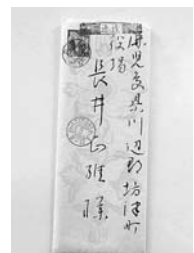 鹿児島県川辺郡坊津町
役場
長井 雅 様